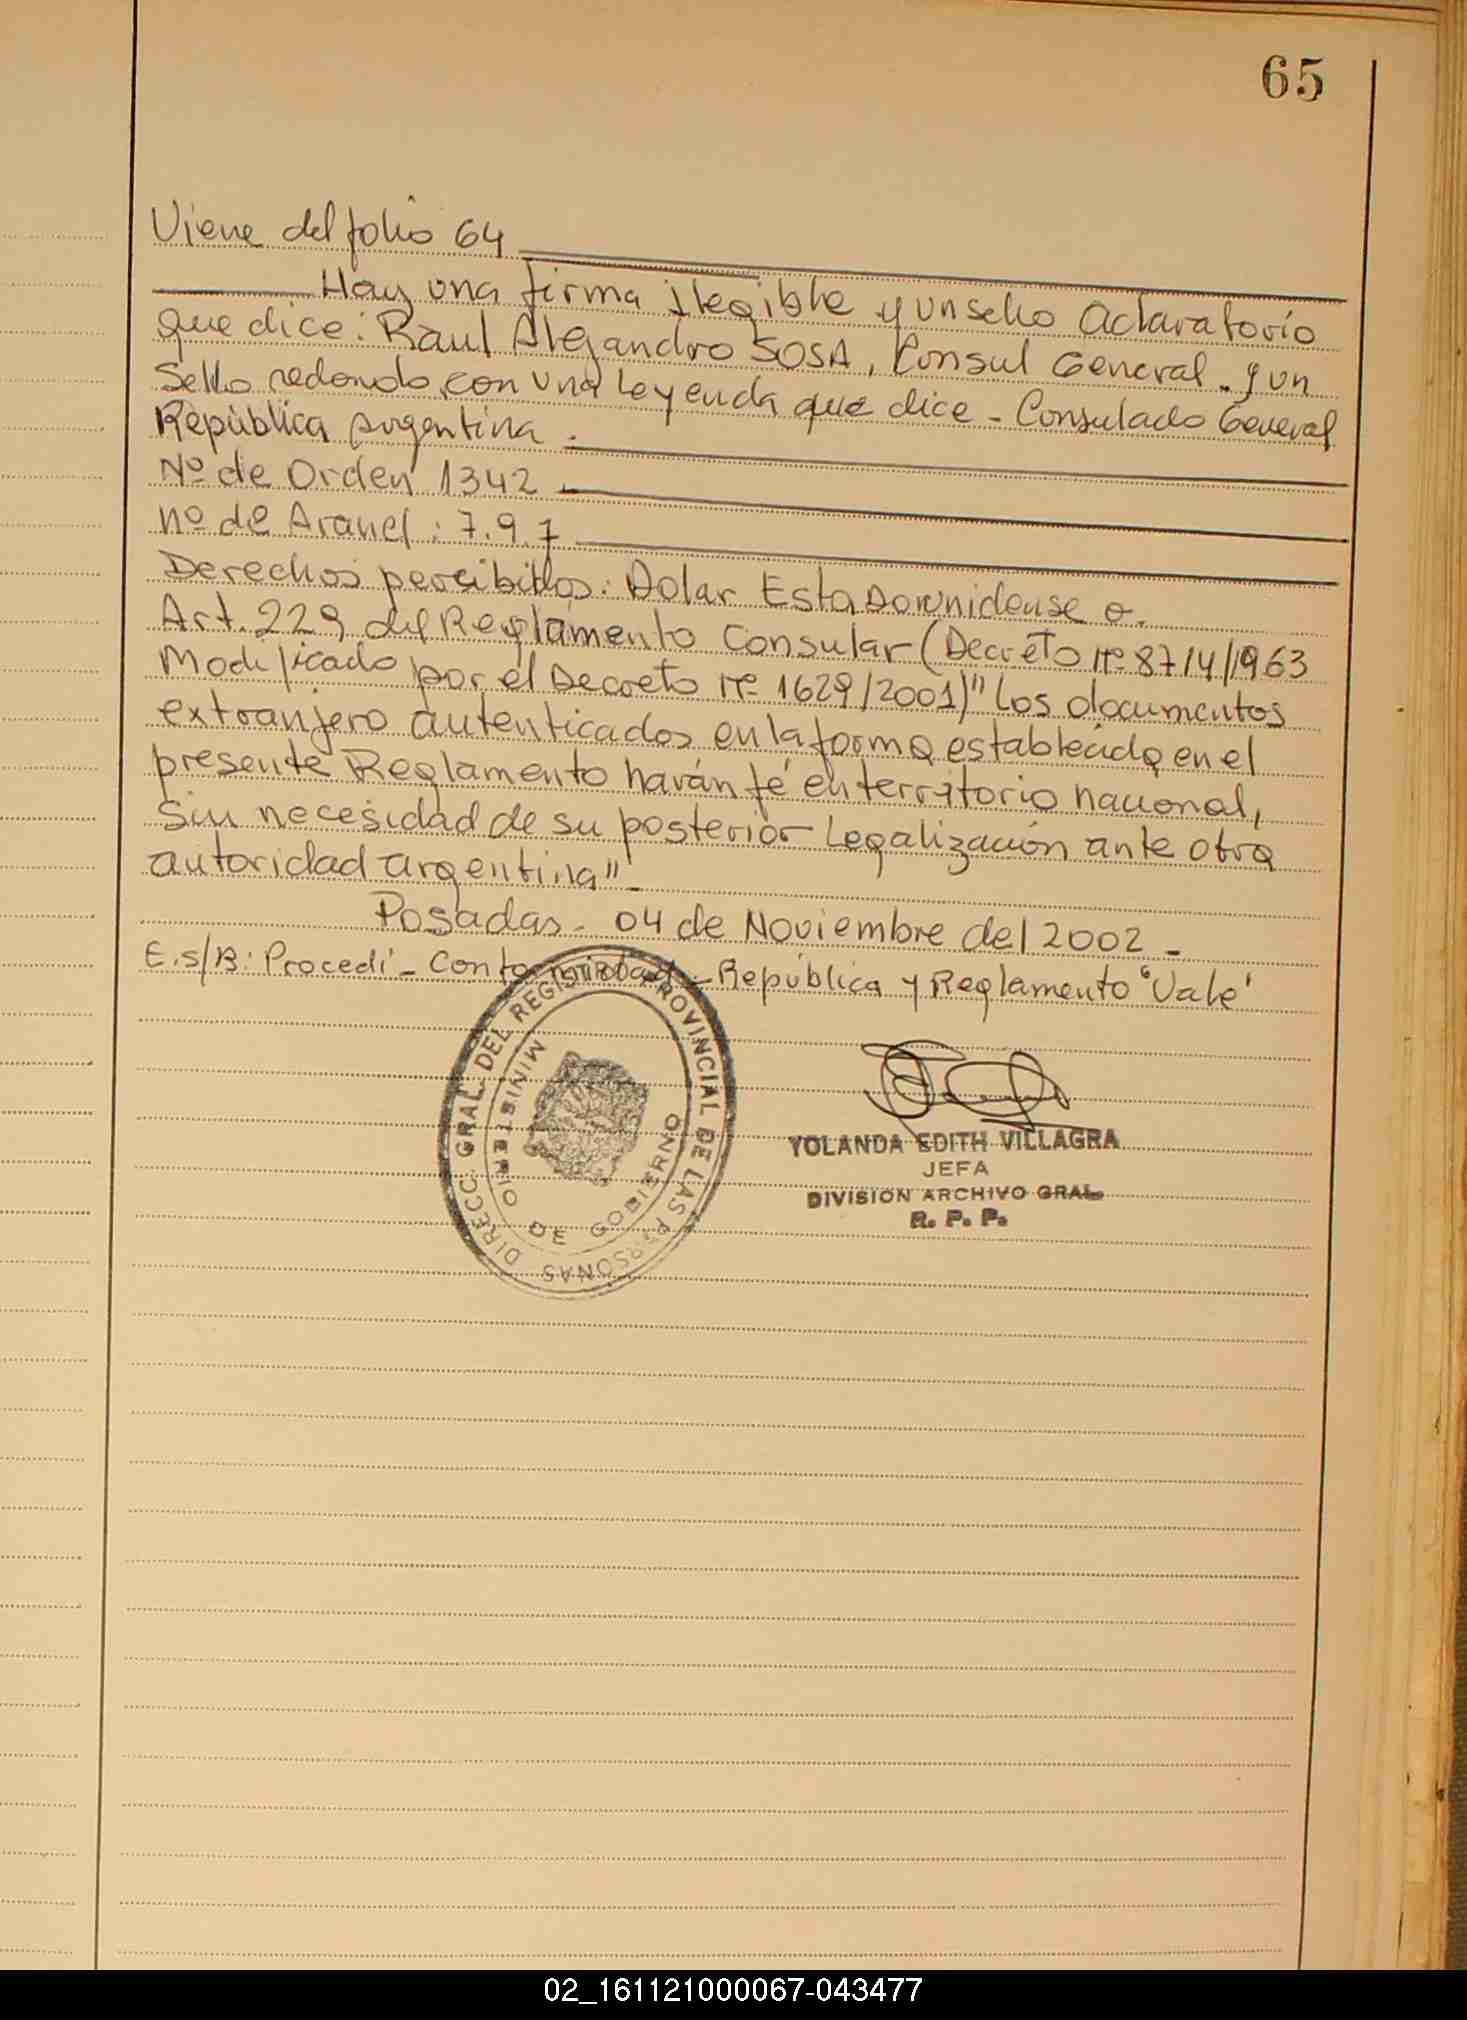 65
Viene del folio 64
Hay una firma ilegible y un sello Aclaratorio
que dice: Raul Alejandro SOSA, Consul General. y un
Sello redondo con una leyenda que dice - Consulado General
República Argentina.
Nº de Orden 1342
nº de Arancel: 7.9.7
Derechos percibidos: Dolar Estadounidense o.
Art. 229 del Reglamento Consular (Decreto nº 8714/1963
Modificado por el Decreto nº 1629/2001)" Los documentos
extranjero autenticados en la forma establecida en el
presente Reglamento harán fé en territorio nacional,
Sin necesidad de su posterior Legalización ante otra
autoridad argentina"-
Posadas - 04 de Noviembre del 2002 -
E.s/B: Procedi - República y Reglamento "Vale"
DIRECC. GRAL. DEL REGISTRO PROVINCIAL DE LAS PERSONAS
MINISTERIO DE GOBIERNO
YOLANDA EDITH VILLAGRA
JEFA
DIVISION ARCHIVO GRAL.
R. P. P.
02_161121000067-043477